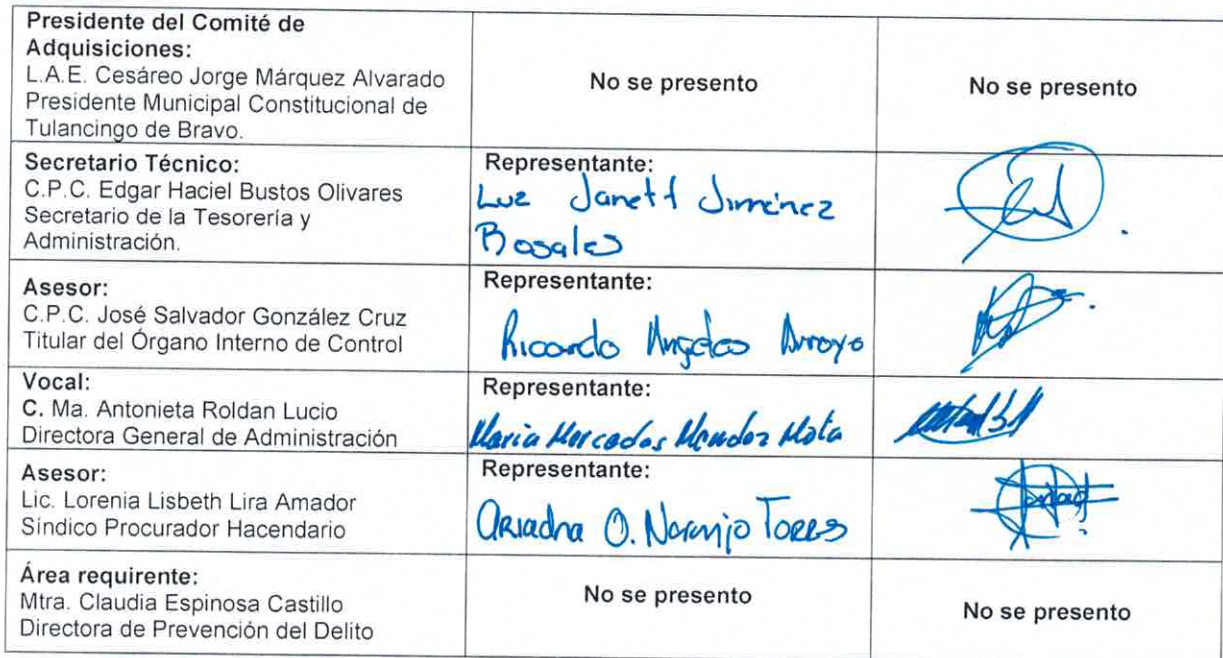 Presidente del Comité de
Adquisiciones:
L.A.E. Cesáreo Jorge Márquez Alvarado
Presidente Municipal Constitucional de
Tulancingo de Bravo.
No se presento
No se presento
Secretario Técnico:
C.P.C. Edgar Haciel Bustos Olivares
Secretario de la Tesorería y
Administración.
Representante:
Luz Janett Jimenez
Rosales
Asesor:
C.P.C. José Salvador González Cruz
Titular del Órgano Interno de Control
Representante:
Ricardo Angeles Arroyo
Vocal:
C. Ma. Antonieta Roldan Lucio
Directora General de Administración
Representante:
Maria Mercedes Mendez Mota
Asesor:
Lic. Lorenia Lisbeth Lira Amador
Sindico Procurador Hacendario
Representante:
Ariadna O. Naranjo Torres
Área requirente:
Mtra. Claudia Espinosa Castillo
Directora de Prevención del Delito
No se presento
No se presento